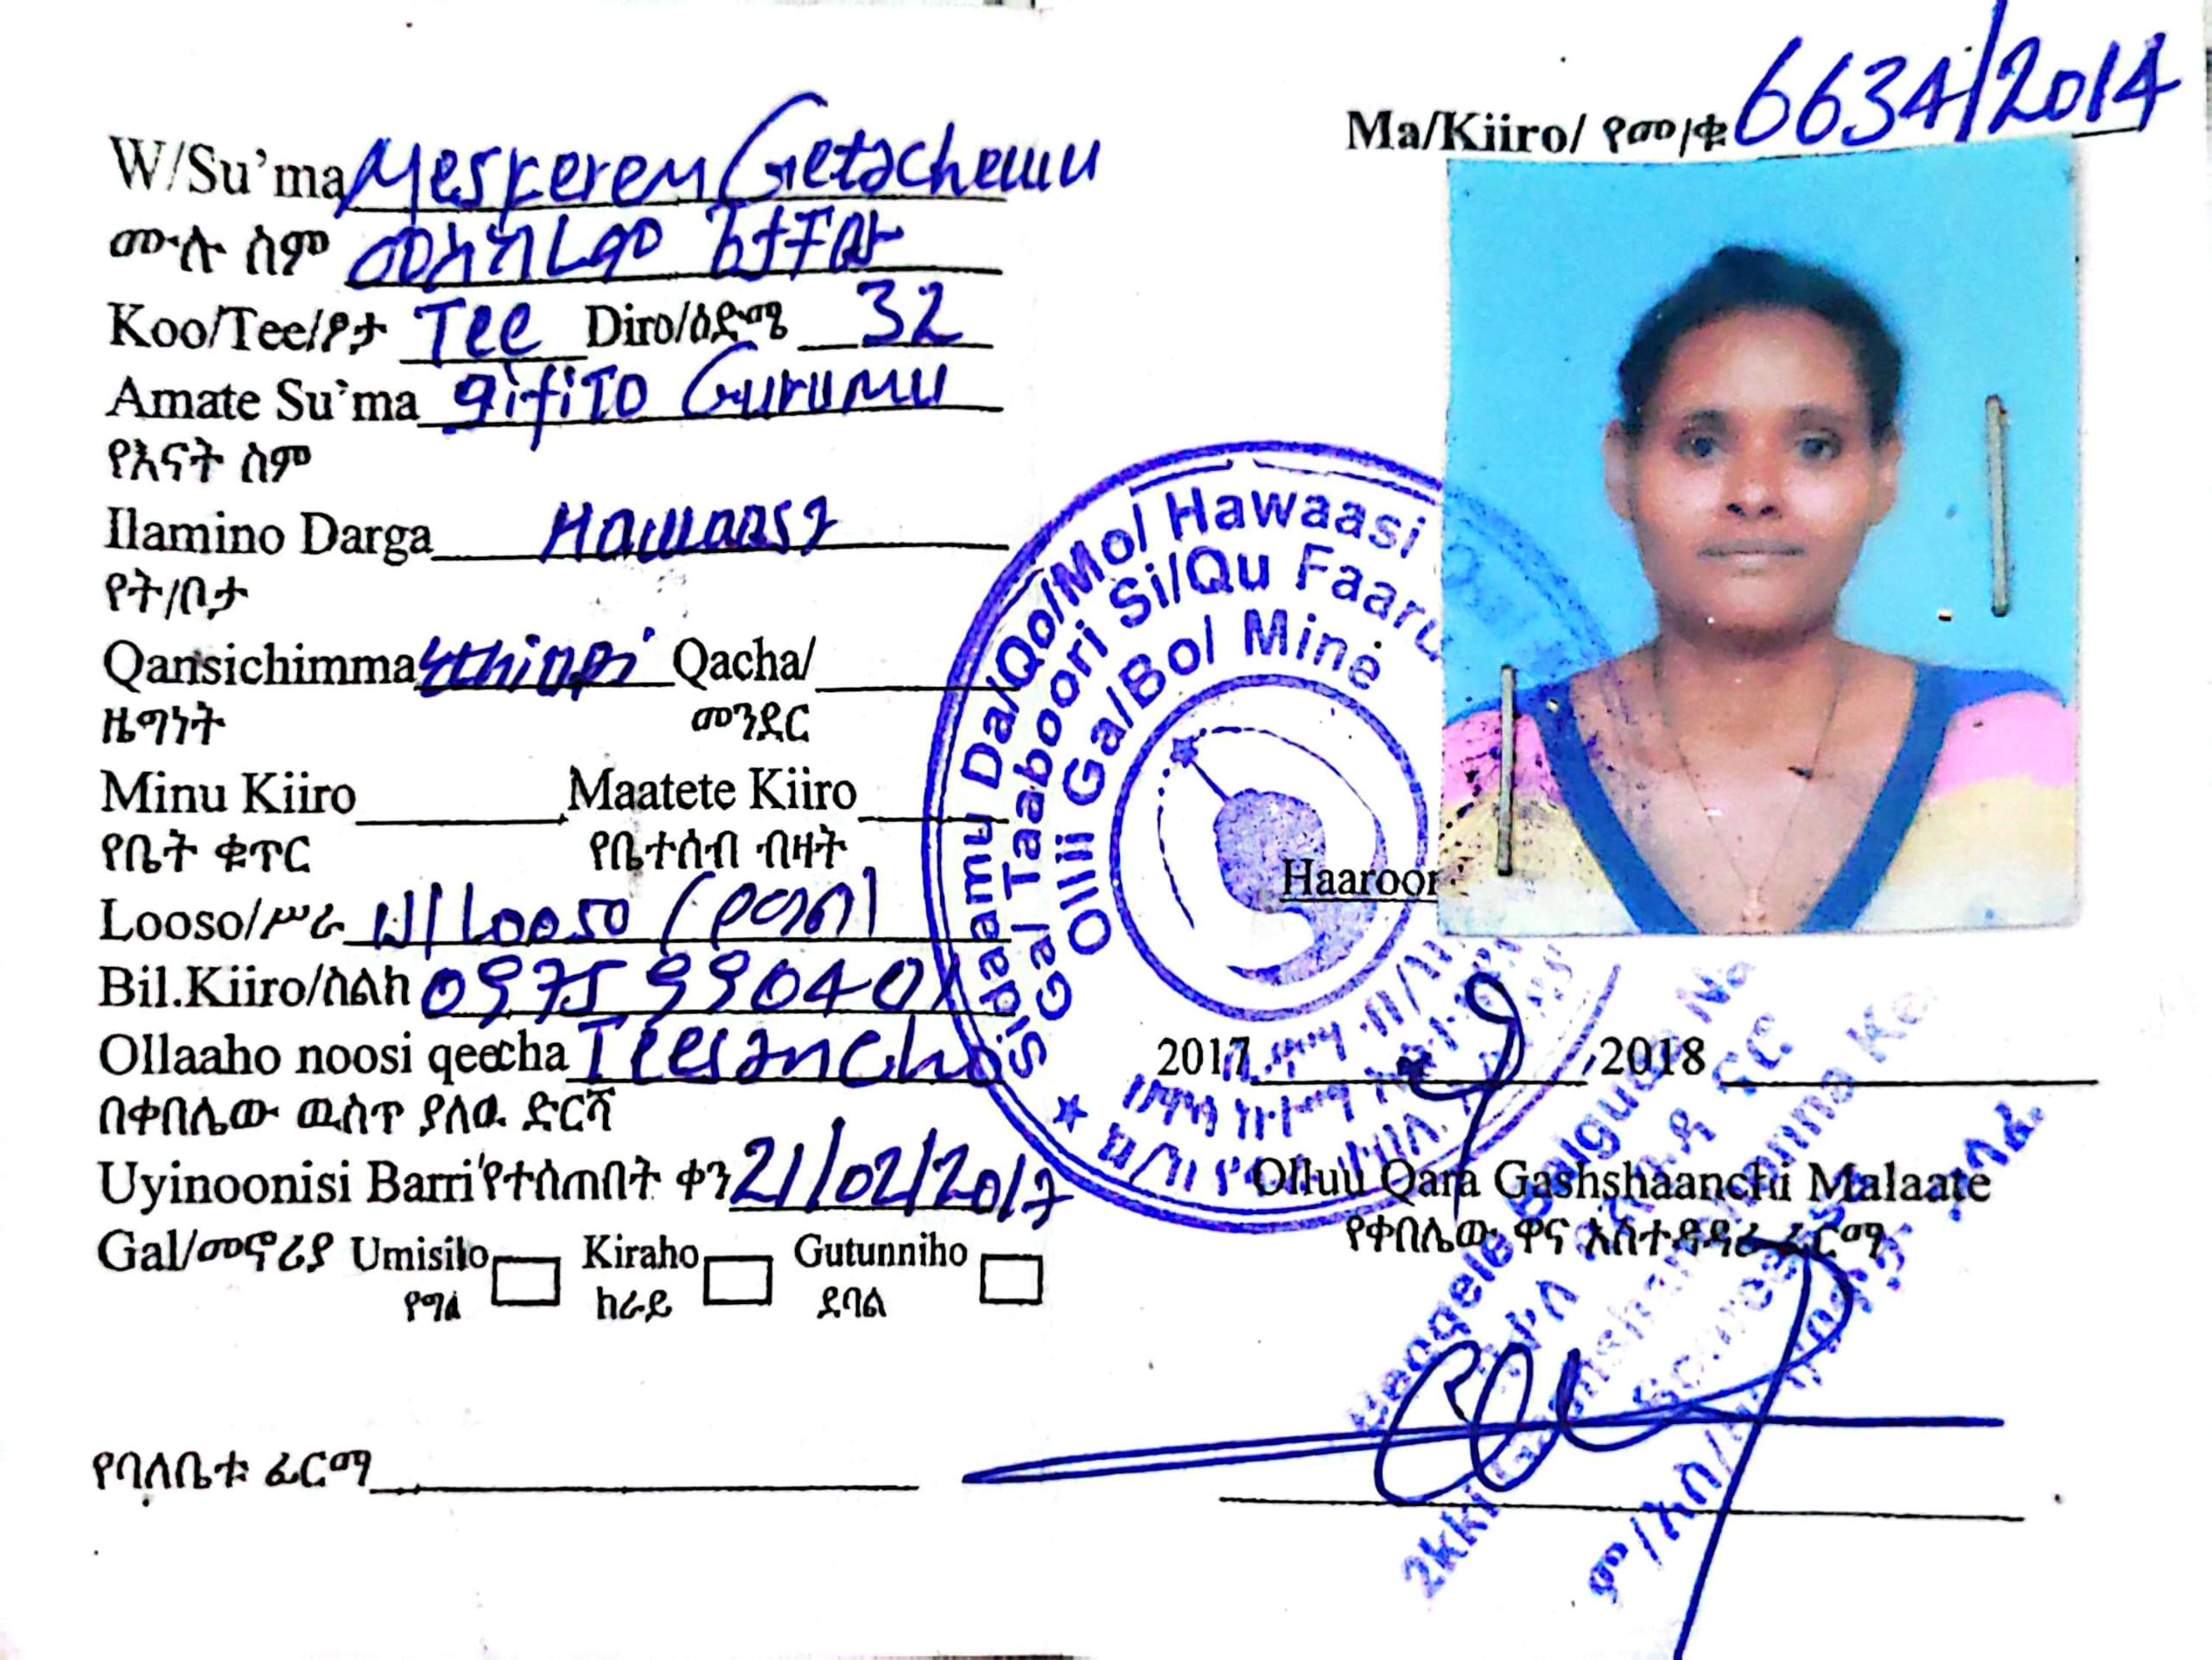 Ma/Kiiro/ የመ/ቁ 6634/2014
W/Su'ma Meskerem Getachewu
ሙሉ ስም መስከረም ጌታቸው
Koo/Tee/ፆታ Tee Diro/ዕድሜ 32
Amate Su'ma gifito Gurumu
የእናት ስም
Ilamino Darga Hawaasa
የት/ቦታ
Qansichimma Qacha/
ዜግነት መንደር
Minu Kiiro Maatete Kiiro
የቤት ቁጥር የቤተሰብ ብዛት
Looso/ሥራ Looso
Bil.Kiiro/ስልክ
Ollaaho noosi qeecha Teesancho
በቀበሌው ዉስጥ ያለዉ ድርሻ
Uyinoonisi Barri የተሰጠበት ቀን 21/02/2017
Gal/መኖሪያ Umisilo Kiraho Gutunniho
የግል ከራይ ደባል
የባለቤቱ ፊርማ
Sidaamu Da/Qo/Mo/ Hawaasi
Gal Taaboori Si/Qu Faaru
Ollii Ga/Bo/ Mine
Haaroor
2017 2018
Olluu Qara Gashshaanchi Malaate
የቀበሌው ዋና አስተዳዳሪ ፊርማ